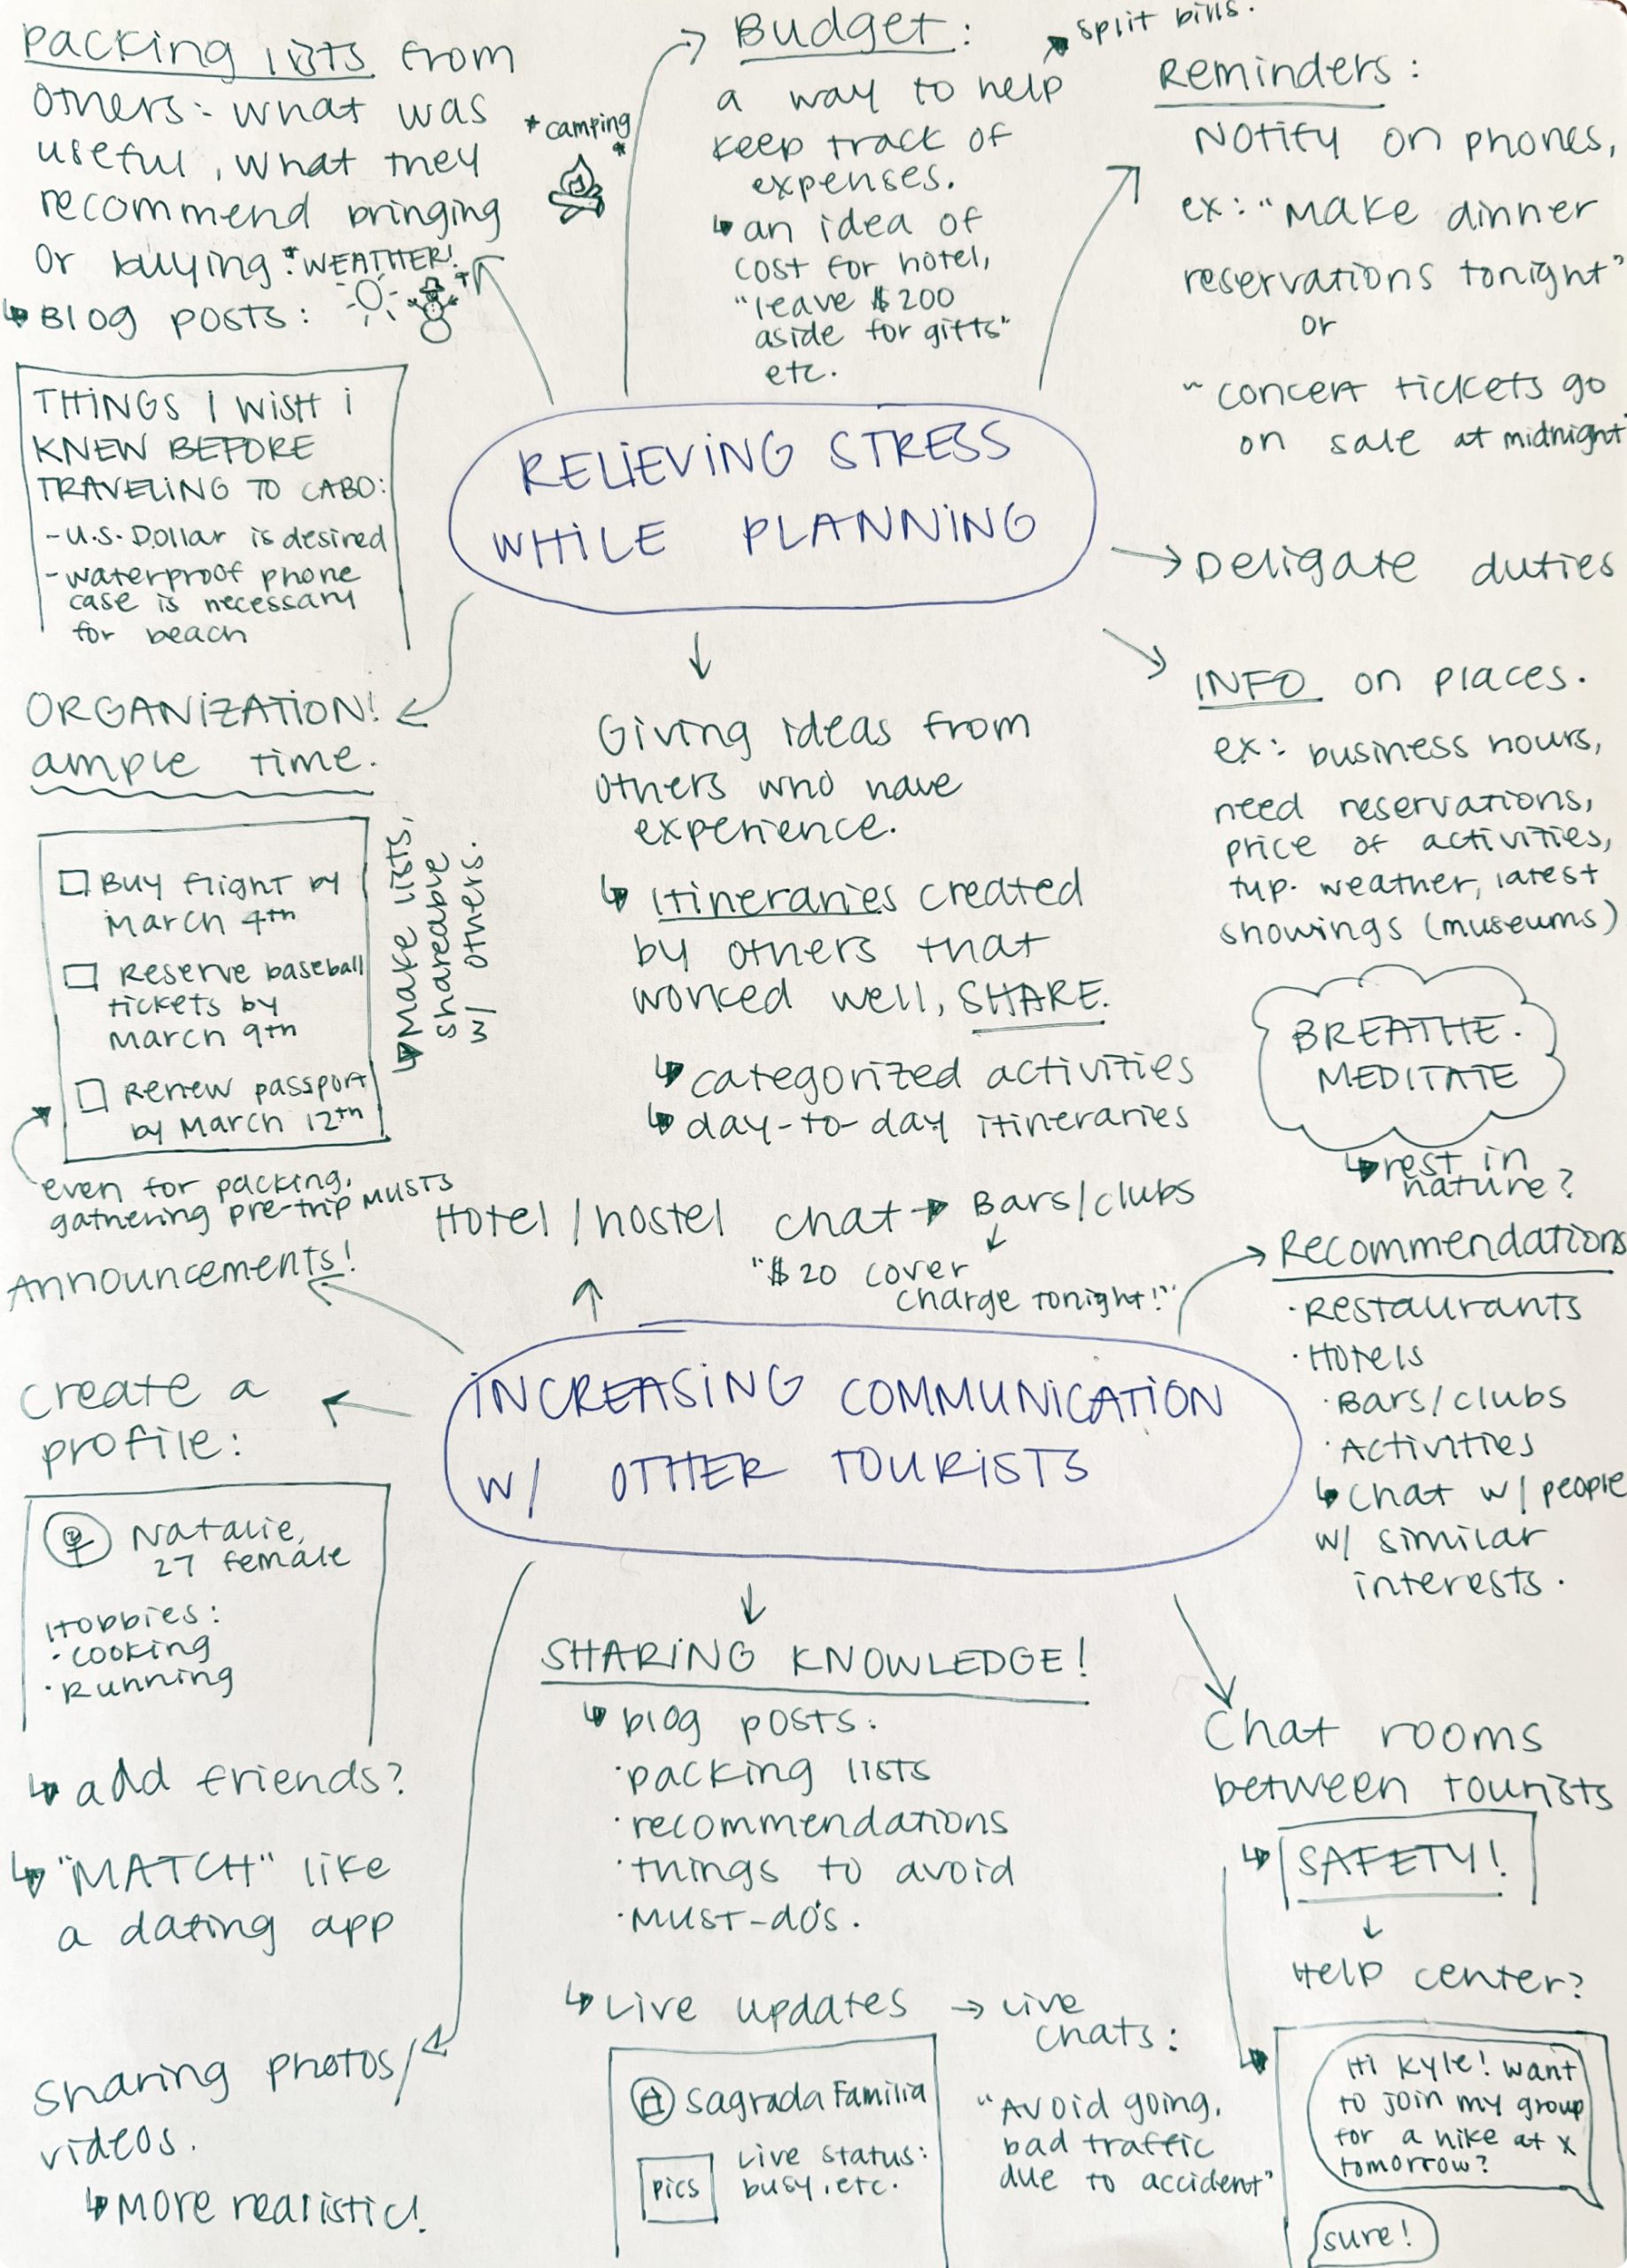 Packing lists from
others: what was
useful, what they
recommend bringing
or buying. *WEATHER!
↳ Blog posts:
*camping*
THINGS I WISH I
KNEW BEFORE
TRAVELING TO CABO:
- U.S. Dollar is desired
- waterproof phone
case is necessary
for beach
Budget:
split bills.
a way to help
keep track of
expenses.
↳ an idea of
cost for hotel,
"leave $200
aside for gifts"
etc.
Reminders:
Notify on phones,
ex: "Make dinner
reservations tonight"
or
"concert tickets go
on sale at midnight
RELIEVING STRESS
WHILE PLANNING
Deligate duties
INFO on places.
ex: business hours,
need reservations,
price of activities,
typ. weather, latest
showings (museums)
BREATHE.
MEDITATE
↳ rest in
nature?
ORGANIZATION!
ample time.
Buy flight by
March 4th
Reserve baseball
tickets by
March 9th
Renew passport
by March 12th
↳ Make lists,
shareable
w/ others.
even for packing,
gathering pre-trip MUSTS
Giving ideas from
others who have
experience.
↳ Itineraries created
by others that
worked well, SHARE.
↳ categorized activities
↳ day-to-day itineraries
Hotel/hostel chat → Bars/clubs
"$20 cover
charge tonight!"
Announcements!
INCREASING COMMUNICATION
W/ OTHER TOURISTS
Recommendations
· Restaurants
· Hotels
· Bars/clubs
· Activities
↳ Chat w/ people
w/ similar
interests.
Create a
profile:
Natalie,
27 female
Hobbies:
· Cooking
· Running
↳ add friends?
↳ "MATCH" like
a dating app
Sharing photos/
videos.
↳ More realistic!
SHARING KNOWLEDGE!
↳ blog posts:
· packing lists
· recommendations
· things to avoid
· Must-do's.
↳ Live updates → Live
chats:
Sagrada Familia
pics
Live status:
busy, etc.
"Avoid going,
bad traffic
due to accident"
Chat rooms
between tourists
↳ SAFETY!
Help center?
Hi Kyle! want
to join my group
for a hike at x
tomorrow?
sure!